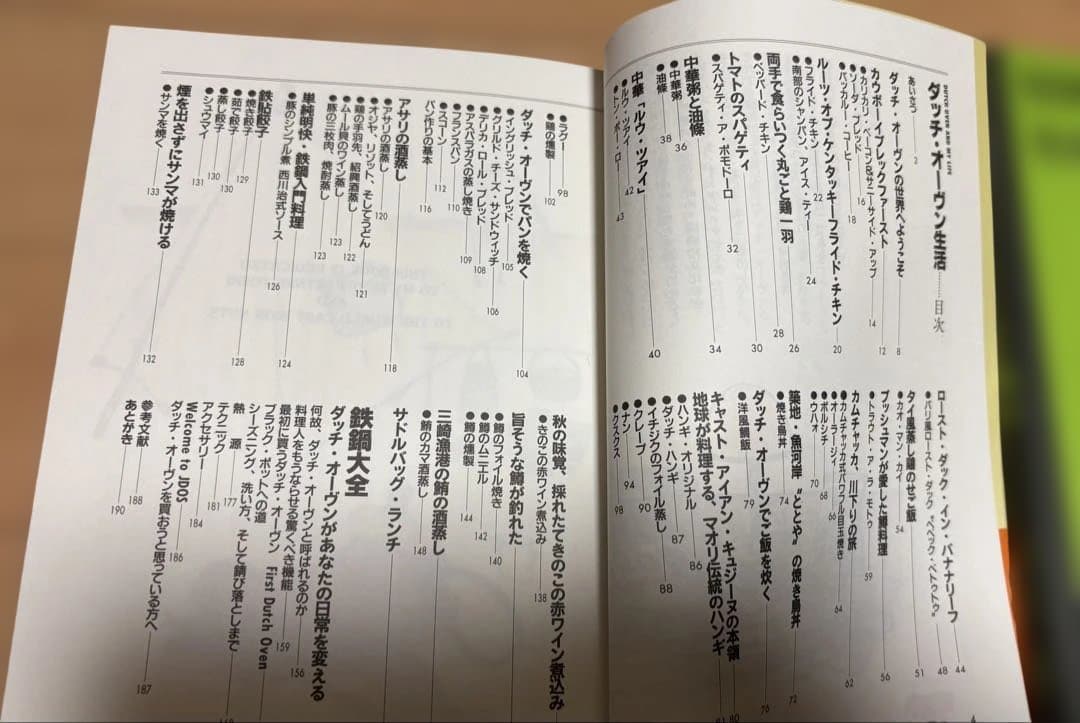 DUTCH OVEN AND MY LIFE
ダッチ・オーヴン生活……目次
あいさつ 2
ダッチ・オーヴンの世界へようこそ 8
カウボーイブレックファースト 12
●カリカリ・ベーコン&サニーサイド・アップ 14
●ソーダ・ブレッド 16
●バッカルー・コーヒー 18
ルーツ・オブ・ケンタッキーフライド・チキン 20
●フライド・チキン 22
●南部のシャンパン、アイス・ティー 24
両手で食らいつく丸ごと鶏一羽 26
●ペッパード・チキン 28
トマトのスパゲティ 30
●スパゲティ・ア・ポモドーロ 32
中華粥と油條 34
●中華粥 36
●油條 38
中華「ルウ・ツァイ」 40
●ルウ・ツァイ 42
●トン・ポー・ロー 43
ロースト・ダック・イン・バナナリーフ 44
●バリ風ロースト・ダック“ベベック・ベトゥトゥ” 48
タイ風蒸し鶏のせご飯 51
●カオ・マン・カイ 54
ブッシュマンが愛した鱒料理 56
●トラウト・ア・ラ・モトゥ 59
カムチャッカ、川下りの旅 62
●カムチャッカ式パワフル目玉焼き 64
●オーラージィ 66
●ボルシチ 68
●ウハオ 70
築地・魚河岸“ととや”の焼き鳥丼 72
●焼き鳥丼 74
ダッチ・オーヴンでご飯を炊く 76
●洋風鯛飯 79
キャスト・アイアン・キュジーヌの本領 80
地球が料理する、マオリ伝統のハンギ 81
●ハンギ・オリジナル 86
●ダッチ・ハンギ 87
●イチジクのフォイル蒸し 88
●クレープ 90
●ナン 94
●クスクス 98
●ラグー 98
●鶏の燻製 102
ダッチ・オーヴンでパンを焼く 104
●イングリッシュ・ブレッド 105
●グリルド・チーズ・サンドウィッチ 106
●デリカ・ロール・ブレッド 108
●アスパラガスの蒸し焼き 109
●フランスパン 110
●スコーン 112
パン作りの基本 116
アサリの酒蒸し 118
●アサリの酒蒸し 120
●オジヤ、リゾット、そしてうどん 121
●鶏の手羽先、紹興酒蒸し 122
●ムール貝のワイン蒸し 123
●豚の三枚肉、焼酎蒸し 123
単純明快・鉄鍋入門料理 124
●豚のシンプル煮 西川治式ソース 126
鉄貼餃子 128
●焼き餃子 129
●茹で餃子 130
●蒸し餃子 130
●シュウマイ 131
煙を出さずにサンマが焼ける 132
●サンマを焼く 133
秋の味覚、採れたてきのこの赤ワイン煮込み
●きのこの赤ワイン煮込み 138
旨そうな鱒が釣れた
●鱒のフォイル焼き 140
●鱒のムニエル 142
●鱒の燻製 144
三崎漁港の鮪の酒蒸し
●鮪のカマ蒸し 148
サドルバッグ・ランチ
鉄鍋大全
ダッチ・オーヴンがあなたの日常を変える
何故、ダッチ・オーヴンと呼ばれるのか 156
料理人をもうならせる驚くべき機能 159
最初に買うダッチ・オーヴン First Dutch Oven
ブラック・ポットへの道
シーズニング、洗い方、そして錆び落としまで
熱 源
テクニック 177
アクセサリー 181
Welcome to IDOS 184
ダッチ・オーヴンを買おうと思っている方へ 186
187
参考文献 188
あとがき 190